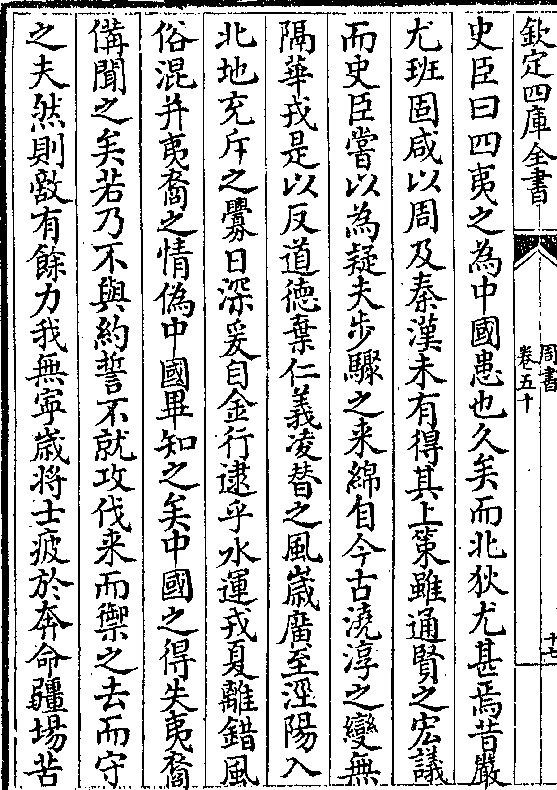 欽定四庫全書
周書
卷五十
十七
史臣曰四夷之為中國患也久矣而北狄尤甚焉昔嚴
尤班固咸以周及秦漢未有得其上策雖通賢之宏議
而史臣嘗以為疑夫步驟之来綿自今古澆淳之變無
隔華戎是以反道德棄仁義凌替之風歲廣至涇陽入
北地充斥之釁日深爰自金行逮乎水運戎夏離錯風
俗混并夷裔之情偽中國畢知之矣中國之得失夷裔
備聞之矣若乃不與約誓不就攻伐来而禦之去而守
之夫然則敵有餘力我無寧歲將士疲於奔命疆場苦